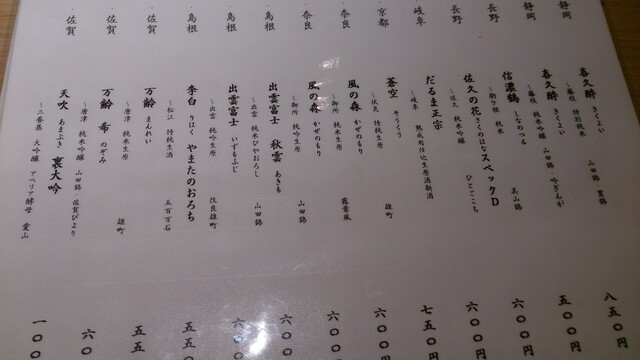 ・静岡 喜久酔 きくよい 八五〇円
～藤枝 特別純米 山田錦
・静岡 喜久酔 きくよい 五〇〇円
～藤枝 純米吟醸 山田錦・吟ぎんが
・長野 信濃鶴 しなのつる 六〇〇円
～駒ヶ根 純米 美山錦
・長野 佐久の花 さくのはな スペックD 六〇〇円
～佐久 純米吟醸 ひとごこち
・岐阜 だるま正宗 七五〇円
～岐阜 熟成用仕込生原酒新酒
・京都 蒼空 そうくう 六〇〇円
～伏見 特純生原 雄町
・奈良 風の森 かぜのもり 六〇〇円
～御所 純吟生原 露葉風
・奈良 風の森 かぜのもり 六〇〇円
～御所 純吟生原 山田錦
・島根 出雲富士 秋雲 あきも 六〇〇
～出雲 純米ひやおろし 山田錦
・島根 出雲富士 いずもふじ 六〇〇
～出雲 純吟生原 改良雄町
・島根 李白 りはく やまたのおろち 五五〇
～松江 特純生酒 五百万石
・佐賀 万齢 まんれい 五五
～唐津 純米生原 雄町
・佐賀 万齢 希 のぞみ 六〇
～唐津 純米吟醸 山田錦・佐賀びより
・佐賀 天吹 あまぶき 裏大吟 一〇〇
～三養基 大吟醸 アベリア酵母 愛山